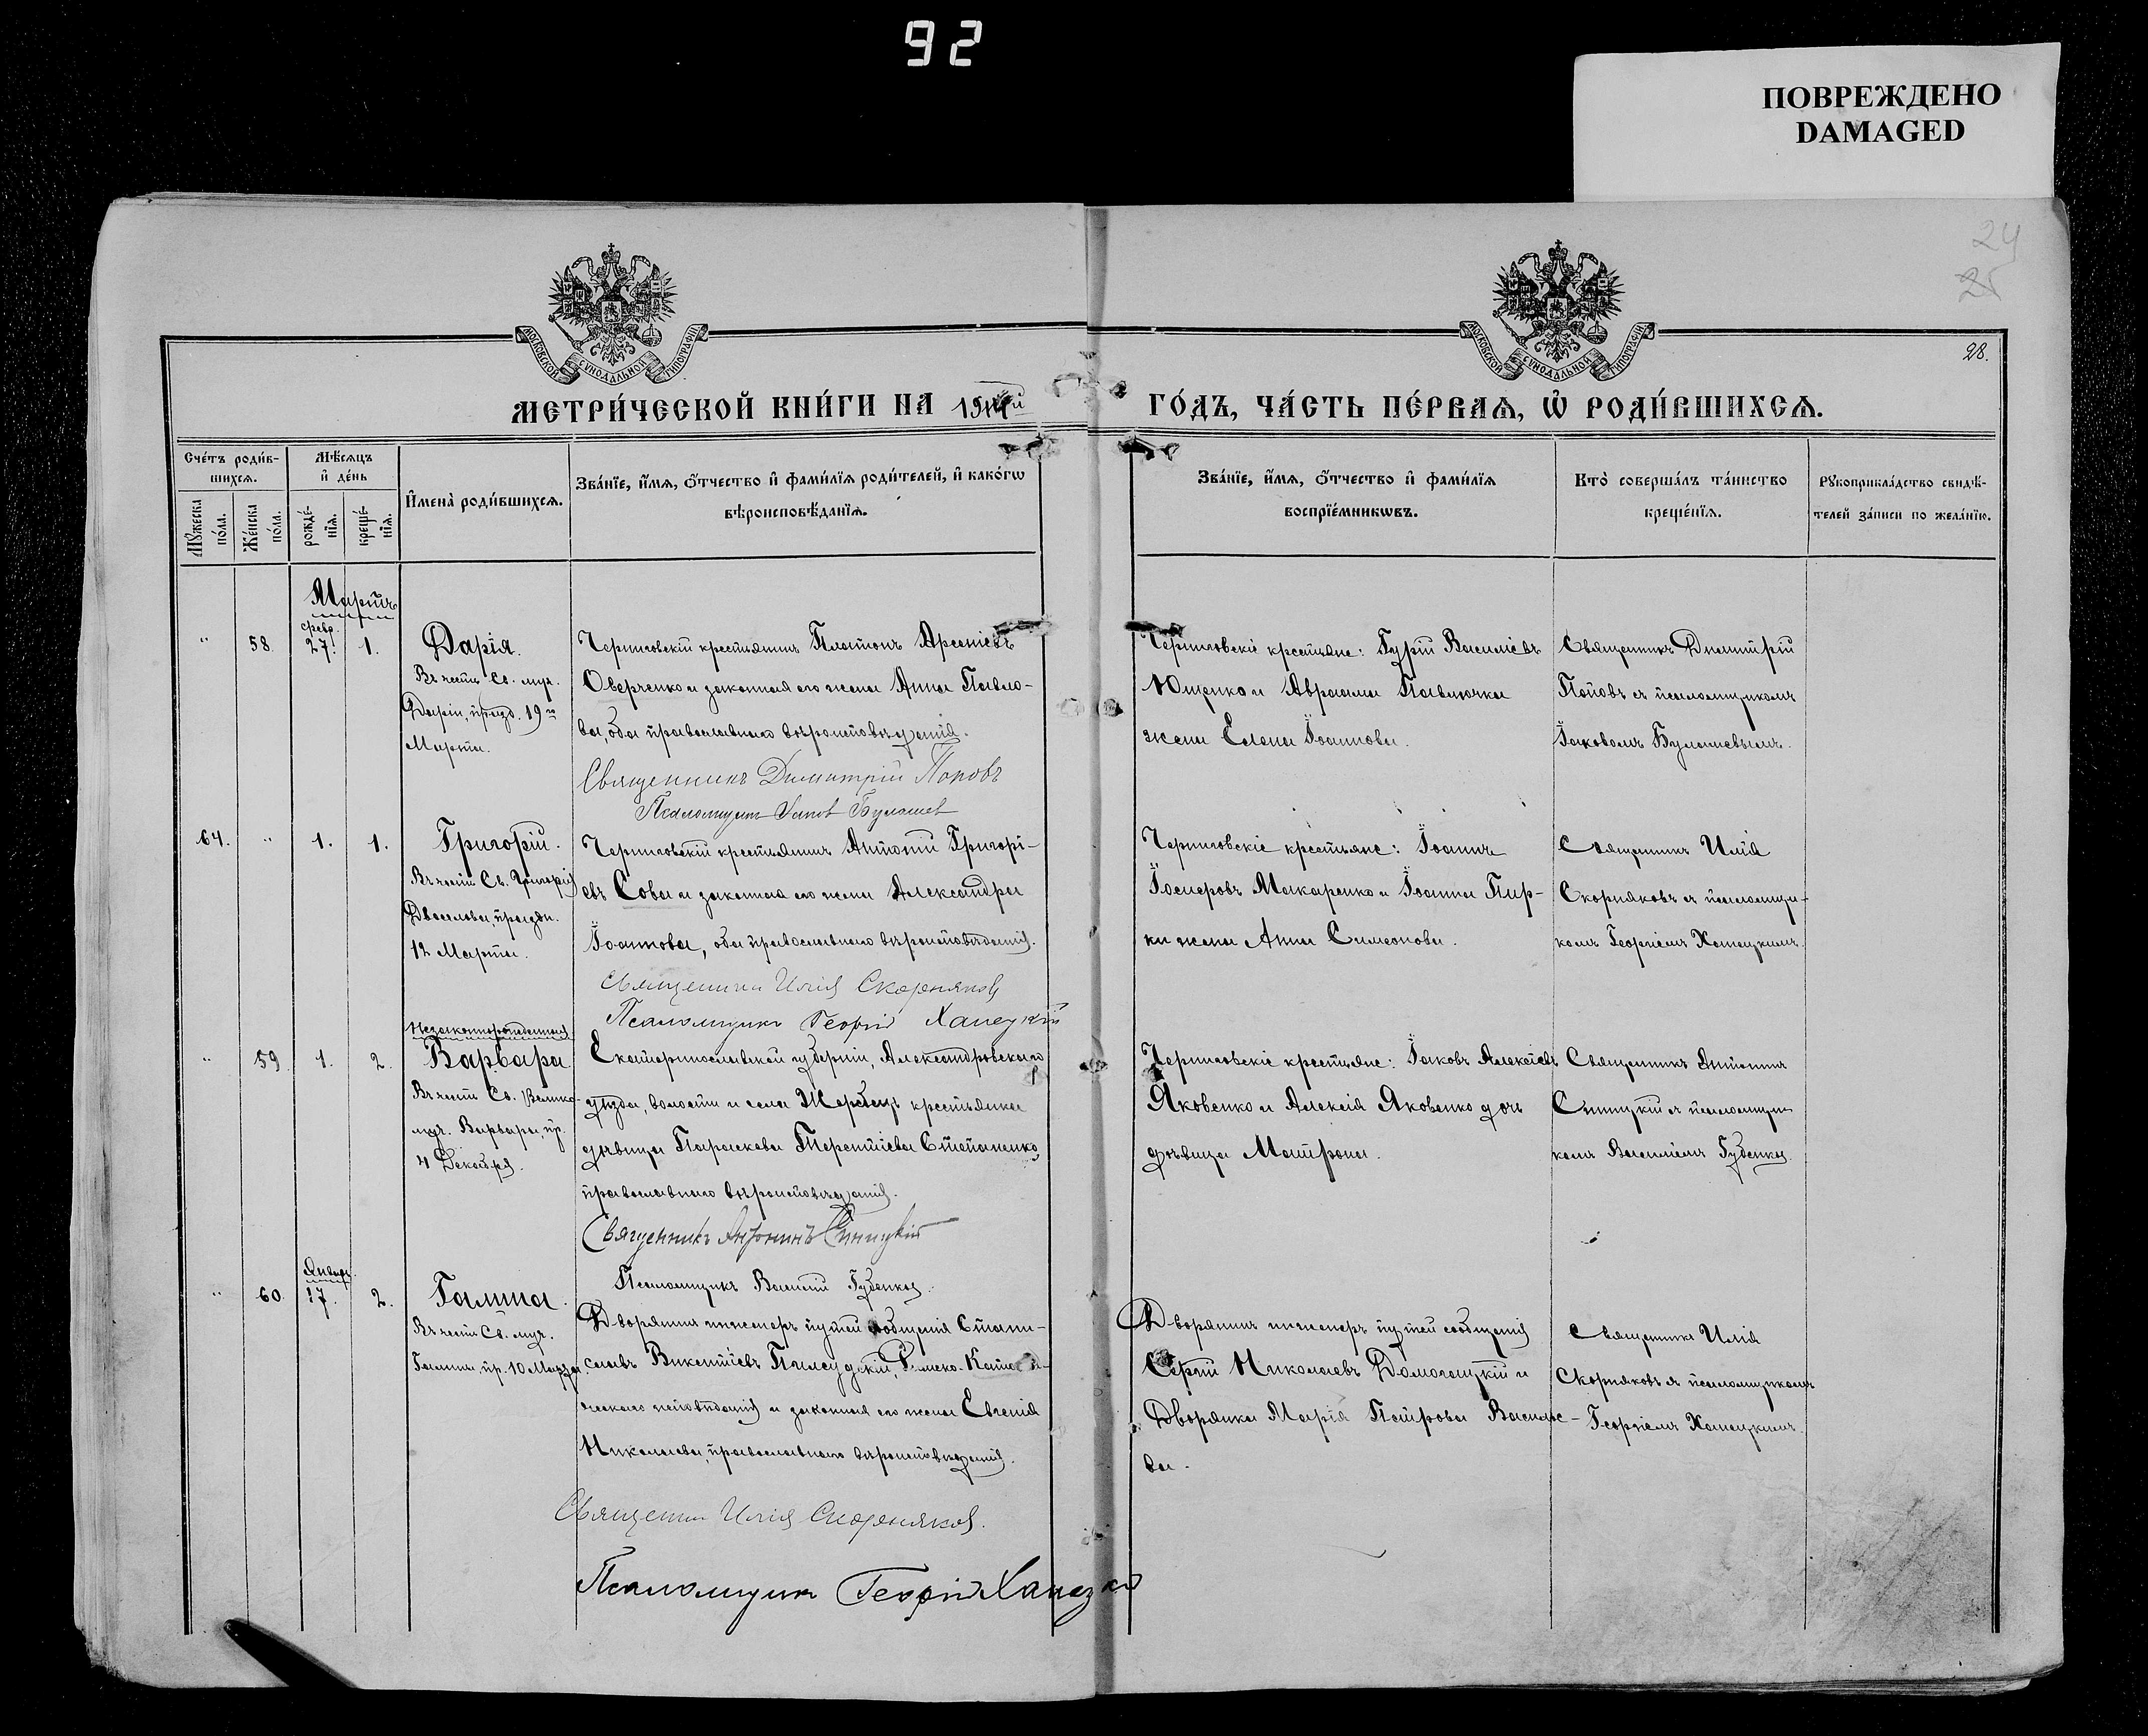 92
ПОВРЕЖДЕНО
DAMAGED
24
25
28.
МОСКОВСКОЙ СѴНОДАЛЬНОЙ ТИПОГРАФІИ
МОСКОВСКОЙ СѴНОДАЛЬНОЙ ТИПОГРАФІИ
МЕТРИ́ЧЕСКОЙ КНИ́ГИ НА
ГО́ДЪ, ЧА́СТЬ ПЕ́РВАѦ, Ѡ҆ РОДИ́ВШИХСѦ.
Сче́тъ роди́в-
шихсѧ.
Мѣ́сѧцъ
и҆ де́нь
Мꙋ́жеска
по́ла.
Же́нска
по́ла.
рожде́-
нїѧ.
креще́-
нїѧ.
И҆мена̀ роди́вшихсѧ.
Зва́нїе, и҆́мѧ, ѻ҆́тчество и҆ фами́лїѧ роди́телей, и҆ како́гѡ
вѣроисповѣ́данїѧ.
Зва́нїе, и҆́мѧ, ѻ҆́тчество и҆ фами́лїѧ
воспрїе́мникѡвъ.
Кто̀ соверша́лъ та́инство
креще́нїѧ.
Рꙋкоприкла́дство свидѣ́-
телей за́писи по жела́нїю.
Мартъ
февр.
" 58 27. 1. Дарія.
Въ честь Св. муч.
Дарiи, празд. 19го
Марта.
Черниговскій крестьянинъ Платонъ Арсеніевъ
Оверченко и законная его жена Анна Павло-
ва, оба православнаго вѣроисповѣданія.
Священникъ Димитрій Поповъ
Псаломщикъ Іаков Булашев
Черниговскіе крестьяне: Гурій Василіевъ
Ющенко и Авраама Павлючка
жена Елена Іоаннова.
Священникъ Димитрій
Поповъ съ псаломщикомъ
Іаковомъ Булашевымъ.
64. " 1. 1. Григорій.
Въ честь Св. Григорія
Двоеслова, праздн.
12 Марта.
Черниговскій крестьянинъ Антоній Григорі-
евъ Сова и законная его жена Александра
Іоаннова, оба православнаго вѣроисповѣданія.
Священникъ Илія Скорняковъ
Псаломщикъ Георгій Ханецкій
Черниговскіе крестьяне: Іоаннъ
Іосифовъ Макаренко и Іоанна Пир-
ки жена Анна Симеонова.
Священникъ Илія
Скорняковъ съ псаломщи-
комъ Георгіемъ Ханецкимъ.
Незаконнорожденная
" 59. 1. 2. Варвара
Въ честь Св. Велико-
муч. Варвары, пр.
4 Декабря.
Екатеринославской губерніи, Александровскаго
уѣзда, волости и села Жеребецъ крестьянка
дѣвица Параскева Терентіева Степаненко,
православнаго вѣроисповѣданія.
Священникъ Антонинъ Синицкій
Псаломщикъ Василій Губенко.
Черниговскіе крестьяне: Іаковъ Алексіевъ
Яковенко и Алексія Яковенко дочь
дѣвица Матрона.
Священникъ Антонинъ
Синицкій съ псаломщи-
комъ Василіемъ Губенко.
Январь.
" 60. 17. 2. Галина.
Въ честь Св. муч.
Галины, пр. 10 Марта.
Дворянинъ инженеръ путей сообщенія Стани-
славъ Викентіевъ Пилсудскій, Римско-Катол
ческаго исповѣданія и законная его жена Евгенія
Николаева, православнаго вѣроисповѣданія.
Священникъ Илія Скорняковъ.
Псаломщикъ Георгій Ханецкій
Дворянинъ инженеръ путей сообщенія
Сергій Николаевъ Домогацкій и
Дворянка Марія Петрова Василье-
ва.
Священникъ Илія
Скорняковъ съ псаломщикомъ
Георгіемъ Ханецкимъ.